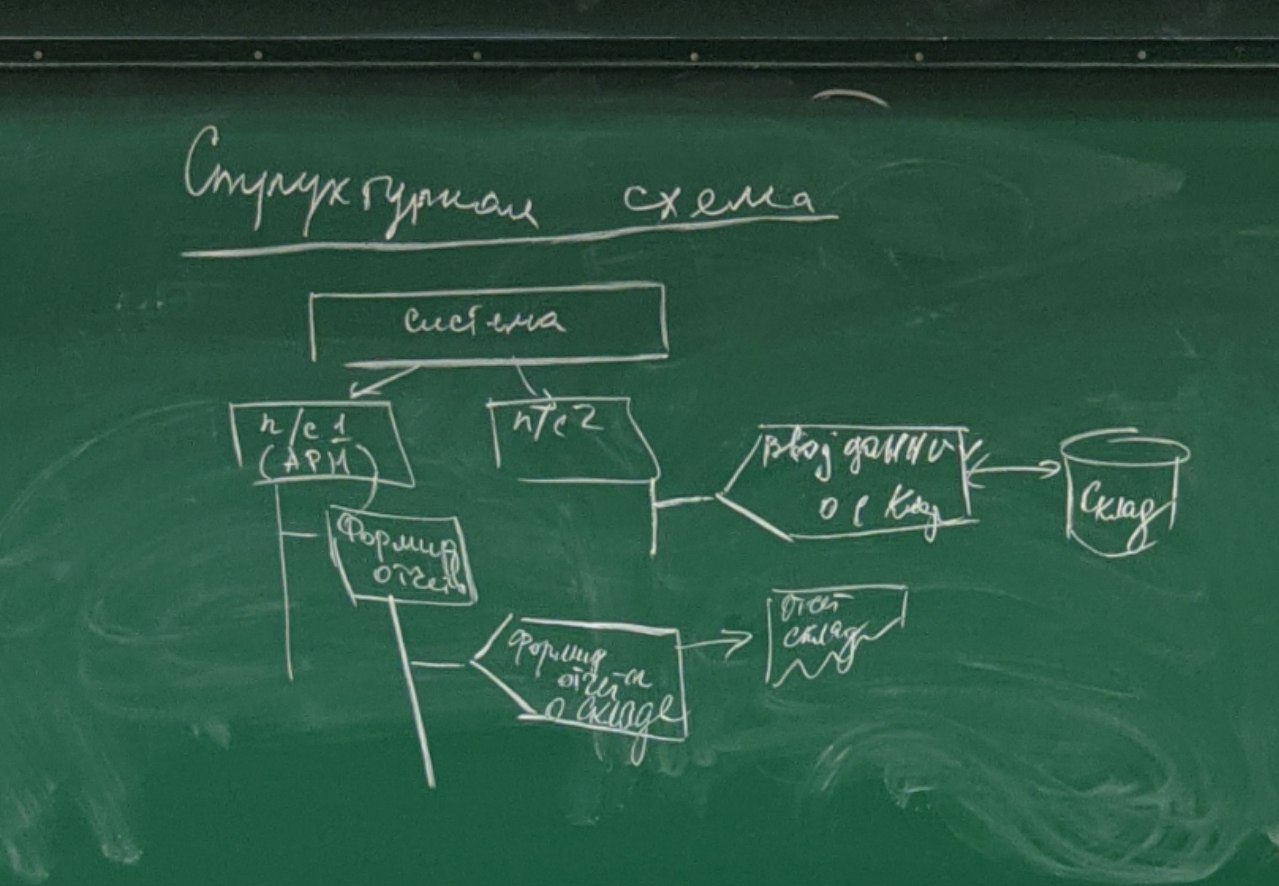 Структурная схема
система
п/с 1
(АРМ)
п/с 2
Ввод данны
о склад
Склад
Формир
отчетов
Формир
отчета
о складе
Отчет
склад